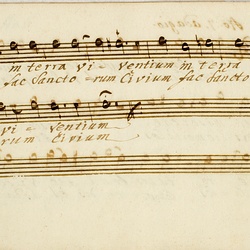 in terra vi - ventium in terra
fac Sancto - rum Civium fac Sancto
vi - ventium
rum Civium